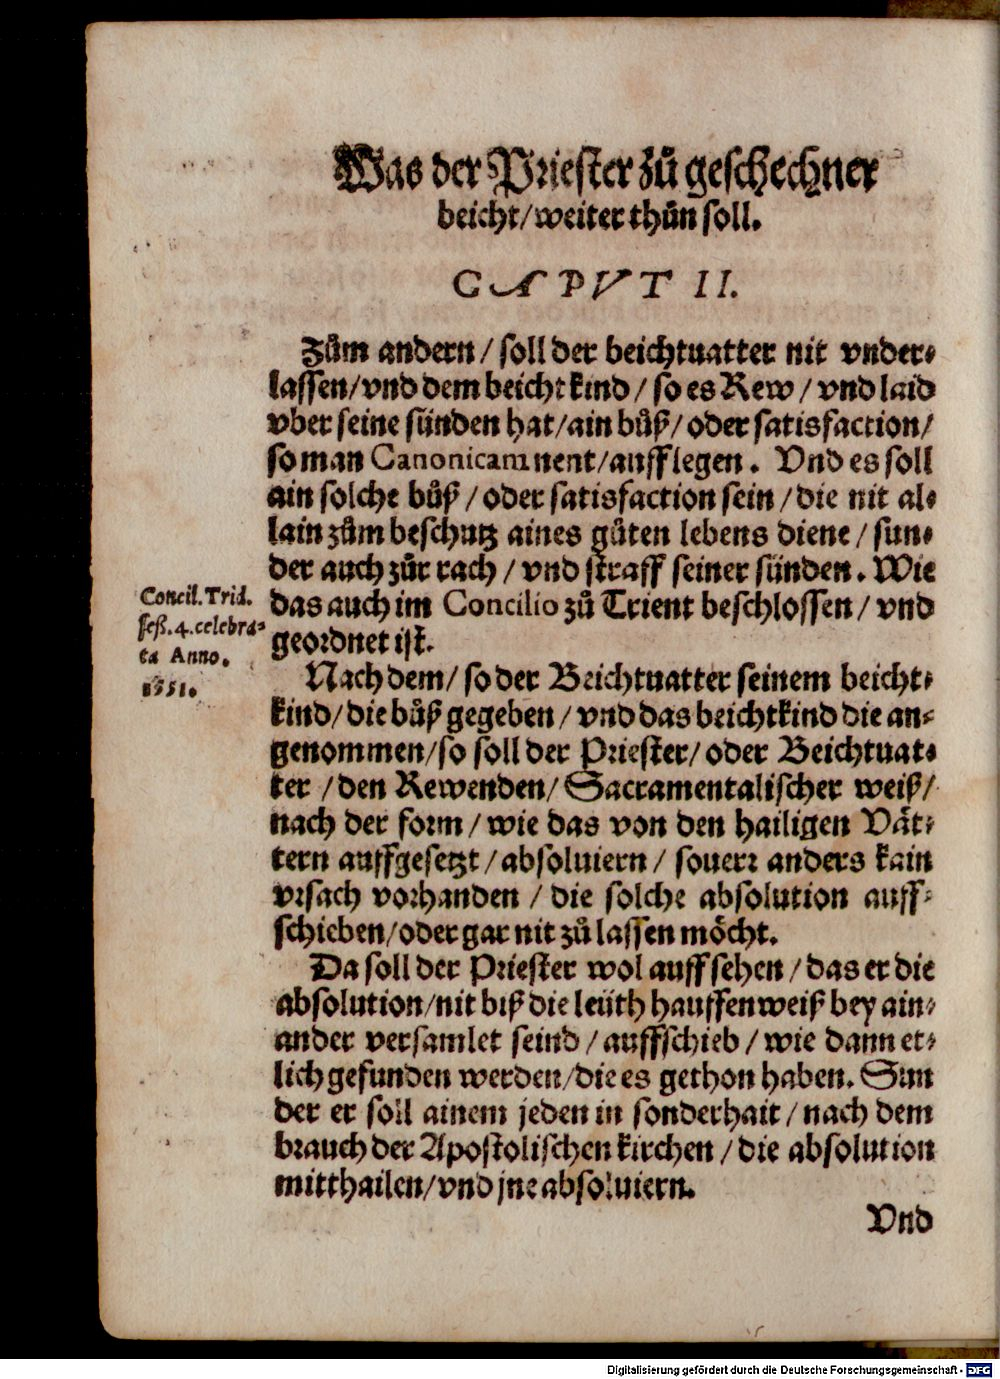 Was der Priester zů geschechner
beicht/weiter thůn soll.
CAPVT II.
Zům andern / soll der beichtuatter nit vnder⸗
lassen/vnd dem beichtkind / so es Rew / vnd laid
vber seine sünden hat/ain bůß/ oder satisfaction/
so man Canonicam nent/aufflegen. Vnd es soll
ain solche bůß / oder satisfaction sein / die nit al⸗
lain zům beschutz aines gůten lebens diene / sun⸗
der auch zůr rach / vnd straff seiner sünden. Wie
das auch im Concilio zů Trient beschlossen / vnd
geordnet ist.
Concil. Trid.
seß. 4. celebra⸗
ta Anno.
1551.
Nach dem/ so der Beichtuatter seinem beicht⸗
kind/ die bůß gegeben / vnd das beichtkind die an⸗
genommen/so soll der Priester/ oder Beichtuat⸗
ter / den Rewenden/ Sacramentalischer weiß/
nach der form / wie das von den hailigen Vät⸗
tern auffgesetzt / absoluiern / souerr anders kain
vrsach vorhanden / die solche absolution auff⸗
schieben/oder gar nit zů lassen möcht.
Da soll der Priester wol auffsehen / das er die
absolution/nit biß die leüth hauffenweiß bey ain⸗
ander versamlet seind / auffschieb / wie dann et⸗
lich gefunden werden/die es gethon haben. Sun
der er soll ainem jeden in sonderhait / nach dem
brauch der Apostolischen kirchen / die absolution
mitthailen/vnd jne absoluiern.
Vnd
Digitalisierung gefördert durch die Deutsche Forschungsgemeinschaft - DFG